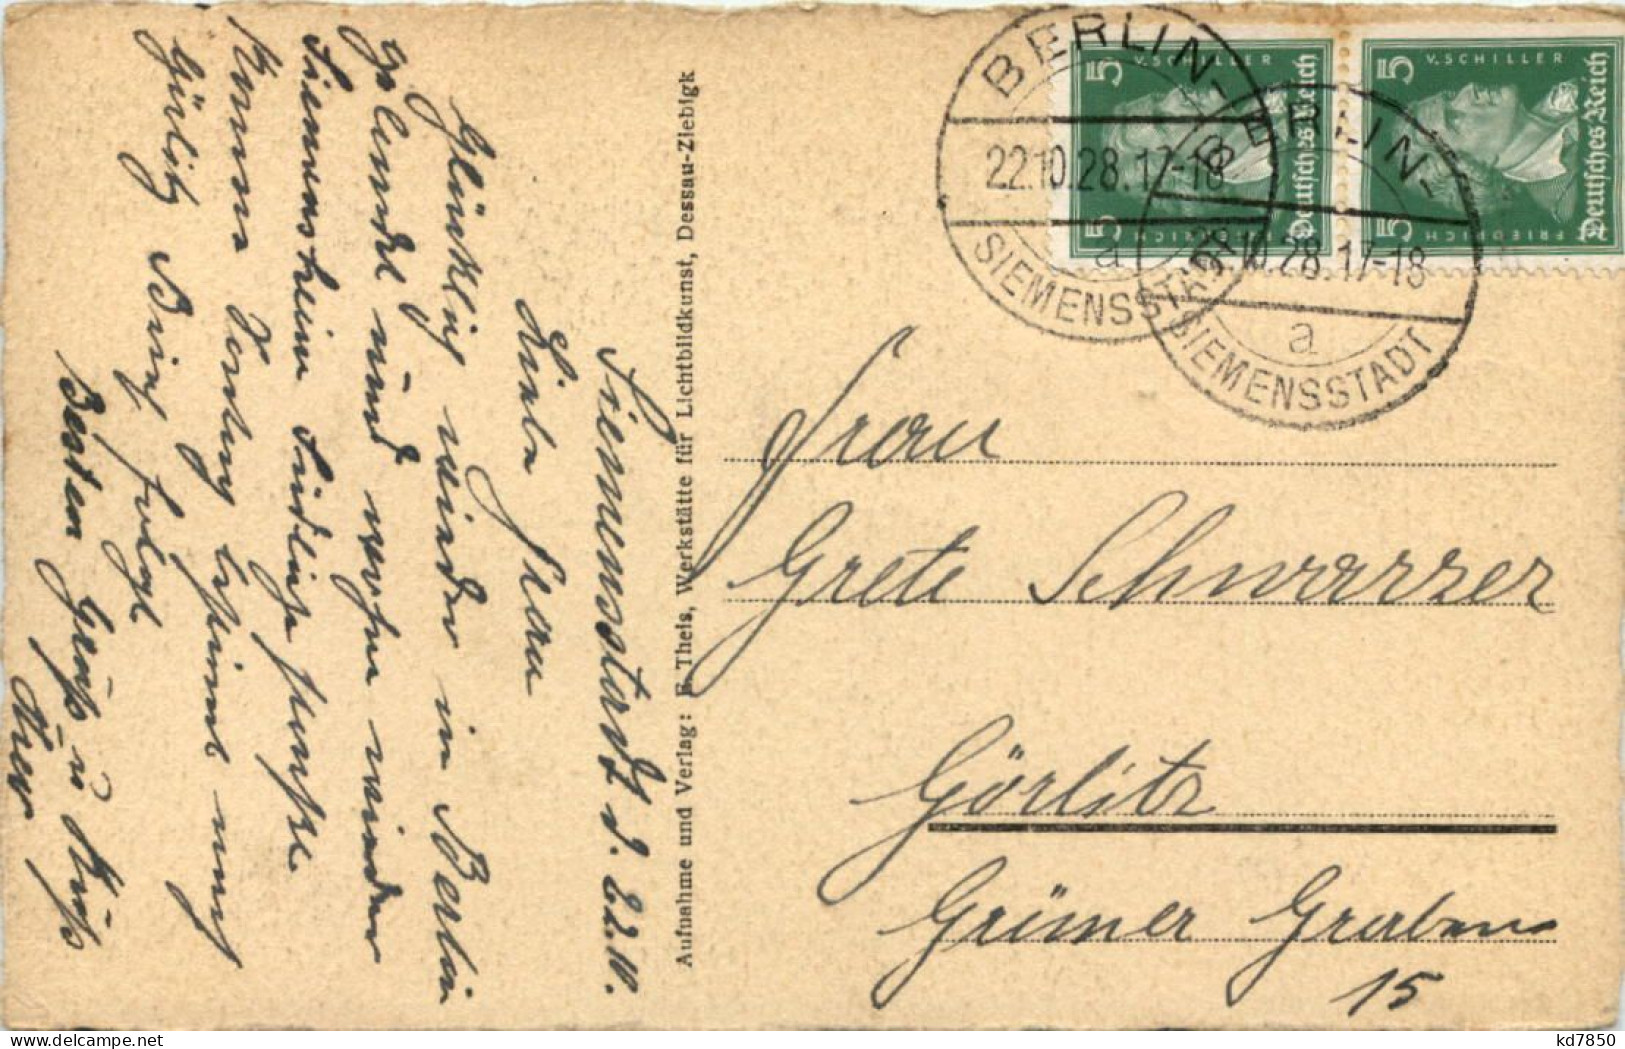 Siemensstadt d. 22.10.
Liebe Frau
Glücklig wieder in Berlin
gelandet und wohne wieder
Siemensheim
Komme
Görlitz Brief folgt
Besten Gruß u. Kuß
Aufnahme und Verlag: E. Theis, Werkstätte für Lichtbildkunst, Dessau-Ziebigk
BERLIN-
22.10.28.17-18
a
SIEMENSSTADT
5 V. SCHILLER
Deutsches Reich
5 FRIEDRICH
5 V. SCHILLER
Deutsches Reich
5 FRIEDRICH
BERLIN-
22.10.28.17-18
a
SIEMENSSTADT
Frau
Grete Schwarzer
Görlitz
Grüner Graben
15
kd7850